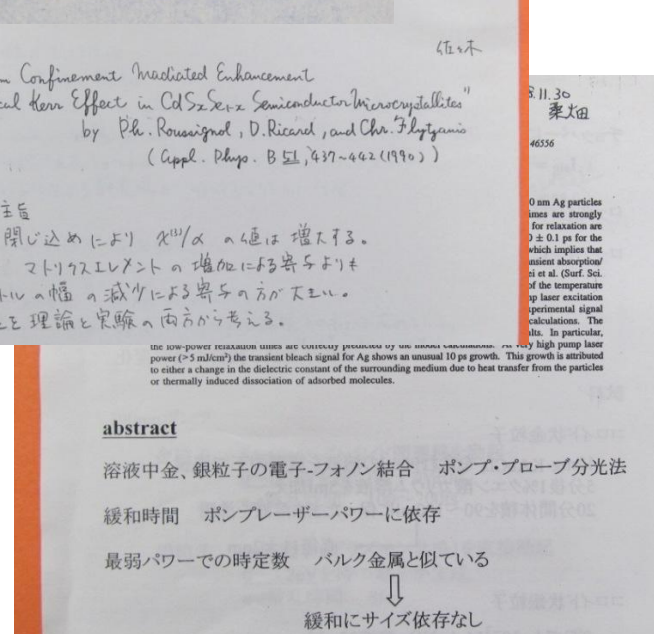 佐々木
Confinement Mediated Enhancement
Kerr Effect in CdSxSe1-x Semiconductor Microcrystallites"
by Ph. Roussignol, D. Ricard, and Chr. Flytzanis
(Appl. Phys. B 51, 437~442 (1990))
主旨
閉じ込めにより χ(3)/α の値は増大する。
マトリクスエレメントの増加による寄与よりも
トルの幅の減少による寄与の方が大きい。
を理論と実験の両方から考える。
8.11.30
桑畑
46556
0 nm Ag particles
are strongly
for relaxation are
0 ± 0.1 ps for the
which implies that
absorption/
et al. (Surf. Sci.
of the temperature
laser excitation
signal
calculations. The
In particular,
the low-power relaxation times are correctly predicted by the model calculations. high pump laser
power (>5 mJ/cm²) the transient bleach signal for Ag shows an unusual 10 ps growth. This growth is attributed
to either a change in the dielectric constant of the surrounding medium due to heat transfer from the particles
or thermally induced dissociation of adsorbed molecules.
abstract
溶液中金、銀粒子の電子-フォノン結合 ポンプ・プローブ分光法
緩和時間 ポンプレーザーパワーに依存
最弱パワーでの時定数 バルク金属と似ている
⇩
緩和にサイズ依存なし